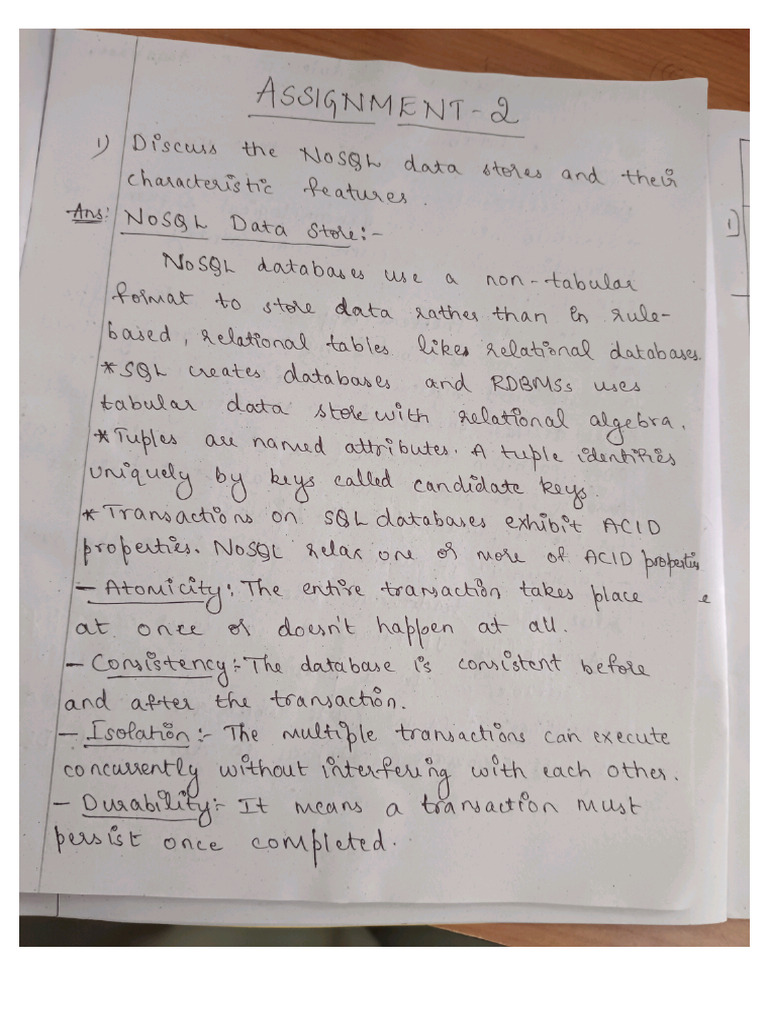 ASSIGNMENT-2
1) Discuss the NoSQL data stores and their
characteristic features.
Ans: NoSQL Data Store:-
NoSQL databases use a non-tabular
format to store data rather than in rule-
based, relational tables like relational databases.
*SQL creates databases and RDBMSs uses
tabular data store with relational algebra.
*Tuples are named attributes. A tuple identifies
uniquely by keys called candidate keys.
*Transactions on SQL databases exhibit ACID
properties. NoSQL relax one or more of ACID properties
- Atomicity:- The entire transaction takes place
at once or doesn't happen at all.
- Consistency:- The database is consistent before
and after the transaction.
- Isolation:- The multiple transactions can execute
concurrently without interfering with each other.
- Durability:- It means a transaction must
persist once completed.
1)
e